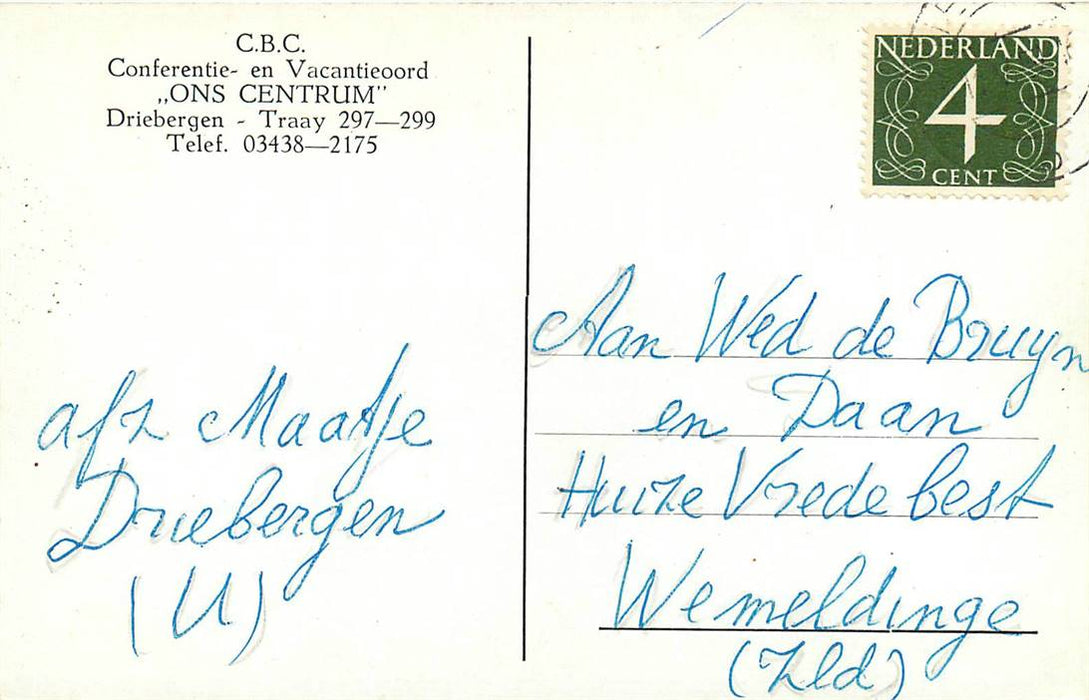 C.B.C.
Conferentie- en Vacantieoord
„ONS CENTRUM"
Driebergen - Traay 297—299
Telef. 03438—2175
NEDERLAND
4
CENT
afz Maatje
Driebergen
(U)
Aan Wed de Bruyn
en Daan
Huize Vredebest
Wemeldinge
(Zld)